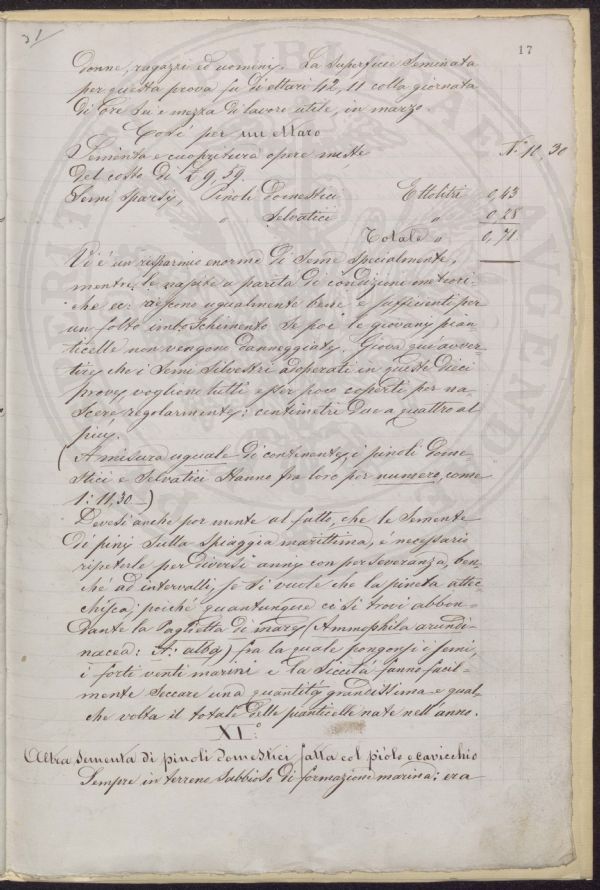 31
17
donne, ragazzi ed uomini. La superficie seminata
per questa prova fu di ettari 42,11 colla giornata
di ore sei e mezza di lavoro utile, in marzo.
Così per un ettaro
Sementa e cuopritura opere miste N.° 10,30
Del costo di £ 9,59.
Semi sparsi, Pinoli domestici Ettolitri 0,43
" selvatici " 0,28
Totale " 0,71
Vi è un risparmio enorme di seme specialmente,
mentre le nascite a parità di condizioni meteori-
che ec: riescono ugualmente bene e sufficienti per
un folto imboschimento se poi le giovani pian
ticelle non vengono danneggiate. Giova qui avver-
tire che i semi silvestri adoperati in queste dieci
prove vogliono tutti esser poco coperti per na-
scere regolarmente: centimetri due a quattro al
più.
(A misura uguale di continente, i pinoli dome-
stici e selvatici stanno fra loro per numero, come
1: 11,30 -)
Devesi anche por mente al fatto, che le semente
di pini sulla spiaggia marittima, è necessario
ripeterle per diversi anni con perseveranza, ben-
ché ad intervalli, se si vuole che la pineta attec-
chisca; poiché quantunque ci si trovi abbon-
dante la Paglietta di mare (Ammophila arundi-
nacea: A: alba) fra la quale pongonsi i semi,
i forti venti marini e la siccità fanno facil-
mente seccare una quantità grandissima e qual-
che volta il totale delle pianticelle nate nell'anno.
XI.°
Altra sementa di pinoli domestici fatta col piolo e cavicchio
Sempre in terreno sabbioso di formazione marina; era